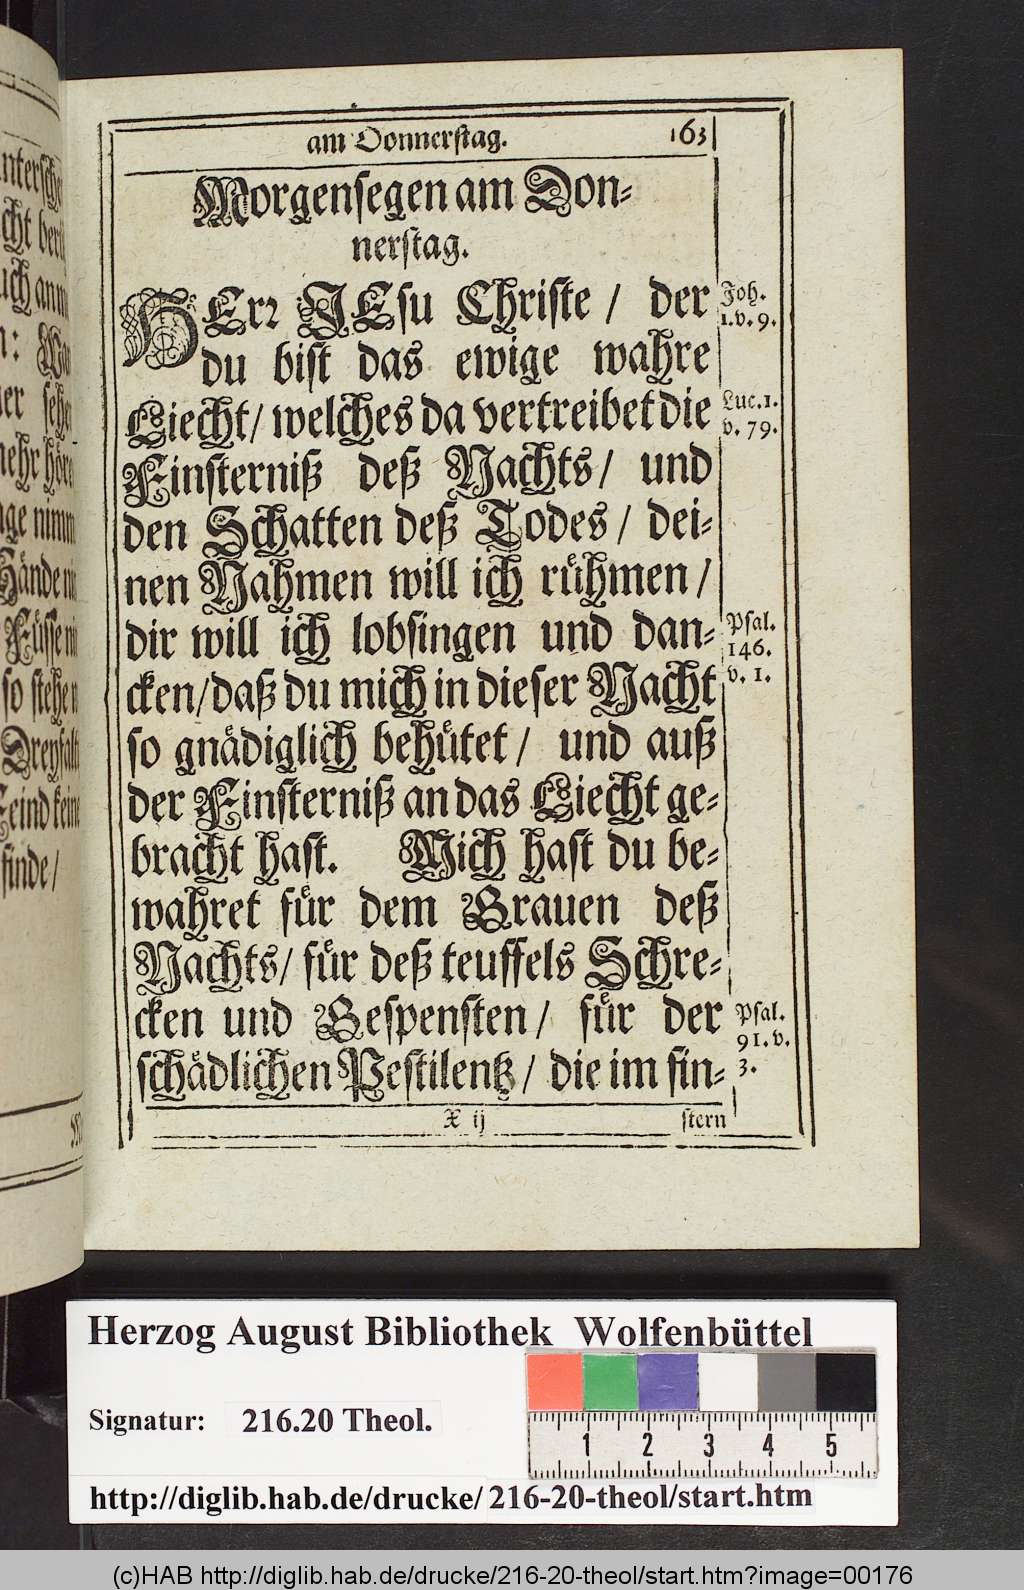 am Donnerstag. 163
Morgensegen am Don-
nerstag.
HErr JEsu Christe / der
du bist das ewige wahre
Liecht / welches da vertreibet die
Finsterniß deß Nachts / und
den Schatten deß Todes / dei-
nen Nahmen will ich rühmen /
dir will ich lobsingen und dan-
cken / daß du mich in dieser Nacht
so gnädiglich behütet / und auß
der Finsterniß an das Liecht ge-
bracht hast. Mich hast du be-
wahret für dem Grauen deß
Nachts / für deß teuffels Schre-
cken und Gespensten / für der
schädlichen Pestilentz / die im fin-
X ij stern
Joh.
1. v. 9.
Luc. 1.
v. 79.
Psal.
146.
v. 1.
Psal.
91. v.
3.
cht
mehr
age nimm
Hände
Füsse
so stehe
Feind keine
finde /
Herzog August Bibliothek Wolfenbüttel
Signatur: 216.20 Theol.
1 2 3 4 5
http://diglib.hab.de/drucke/216-20-theol/start.htm
(c)HAB http://diglib.hab.de/drucke/216-20-theol/start.htm?image=00176